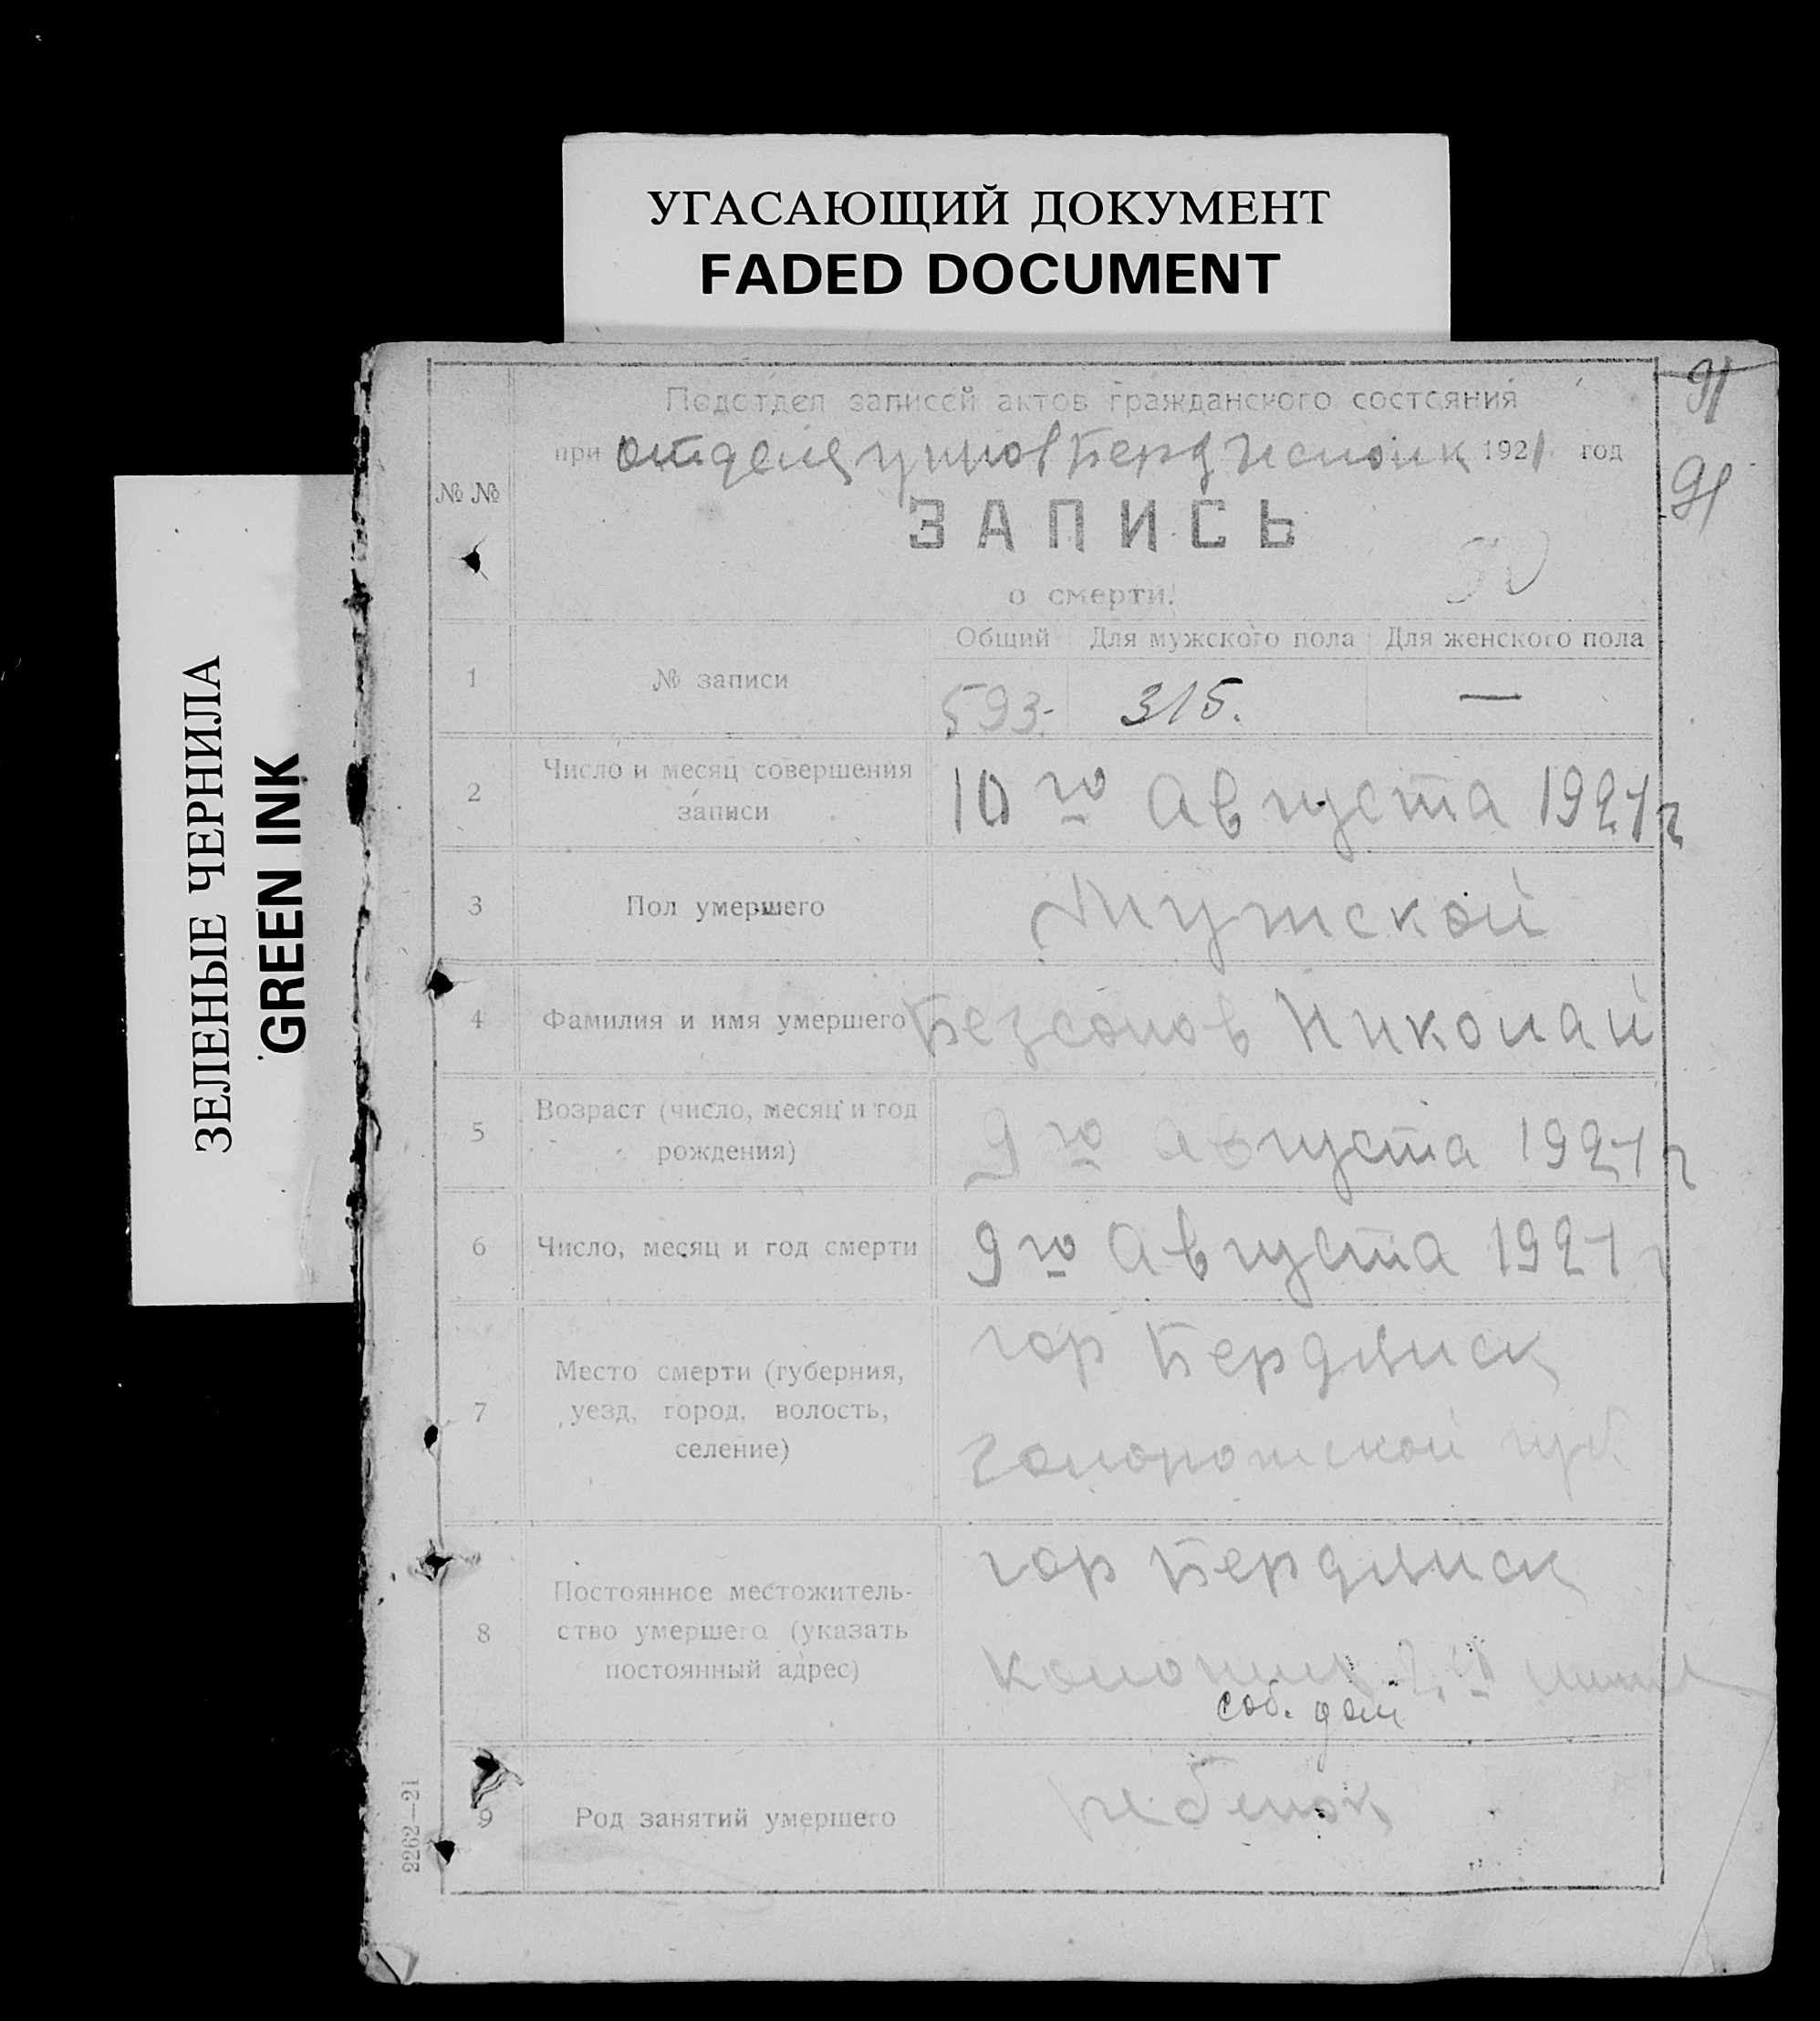 УГАСАЮЩИЙ ДОКУМЕНТ
FADED DOCUMENT
ЗЕЛЕНЫЕ ЧЕРНИЛА
GREEN INK
91
91
Подотдел записей актов гражданского состояния
при отделе 1921 год
№ №
ЗАПИСЬ
о смерти.
50
Общий Для мужского пола Для женского пола
1 № записи 593. 315. —
2 Число и месяц совершения
записи
10го Августа 1921 г
3 Пол умершего Мужской
4 Фамилия и имя умершего Безсонов Николай
5 Возраст (число, месяц и год
рождения)
9го августа 1921 г
6 Число, месяц и год смерти 9го Августа 1921 г
7 Место смерти (губерния,
уезд, город, волость,
селение)
гор Бердянск
Запорожской губ.
8 Постоянное местожитель-
ство умершего (указать
постоянный адрес)
гор Бердянск
соб. дом
9 Род занятий умершего ребенок
2262—21